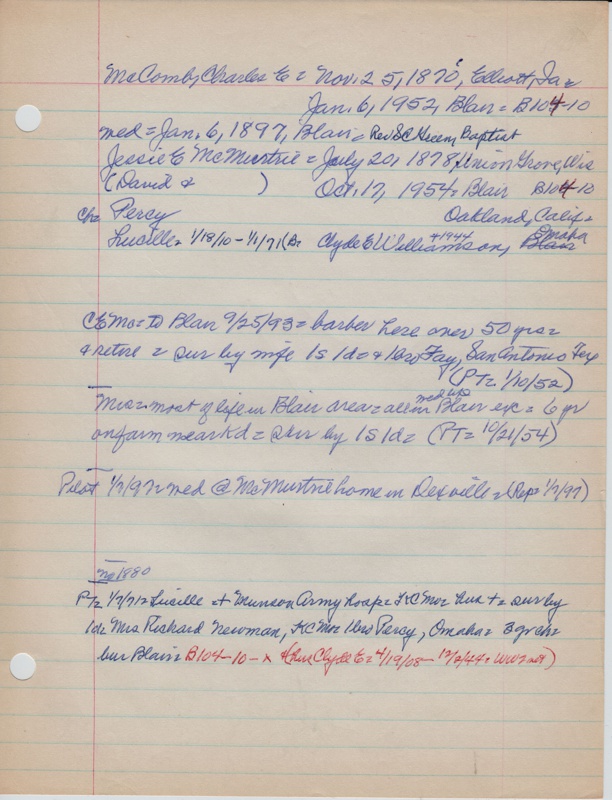 McComb, Charles E = Nov. 25, 1870, Elliott, Ia =
Jan. 6, 1952, Blair = B104-10
med = Jan. 6, 1897, Blair = Rev SC Green, Baptist
Jessie E McMurtrie = July 20, 1878, Union Grove, Wis
(David & ) Oct. 17, 1954 = Blair B104-10
Ch = Percy Oakland, Calif =
Lucille = 1/18/10 - 1/1/71 (B= Clyde E Williamson, +1944 Omaha Blair
CE Mc = to Blair 9/25/93 = barber here over 50 yrs =
& retire = sur by wife 1s 1d = & 1bro Fay, San Antonio Tex
(PT = 1/10/52)
Mrs = most of life in Blair area = med up
in Blair exc = 6 yr
on farm near Kd = sur by 1s 1d = (PT = 10/21/54)
Pilot 1/7/97 = med @ McMurtrie home in Dexville = (Rep = 1/7/97)
no 1880
PT = 1/7/71 = Lucille = + Munson Army hosp = KC Mo = hus + = sur by
1d = Mrs Richard Newman, KC Mo = 1bro Percy, Omaha = 3 grch =
bur Blair = B104-10-x & (hus Clyde E = 4/19/08 - 12/2/44 = WW2 mkr)